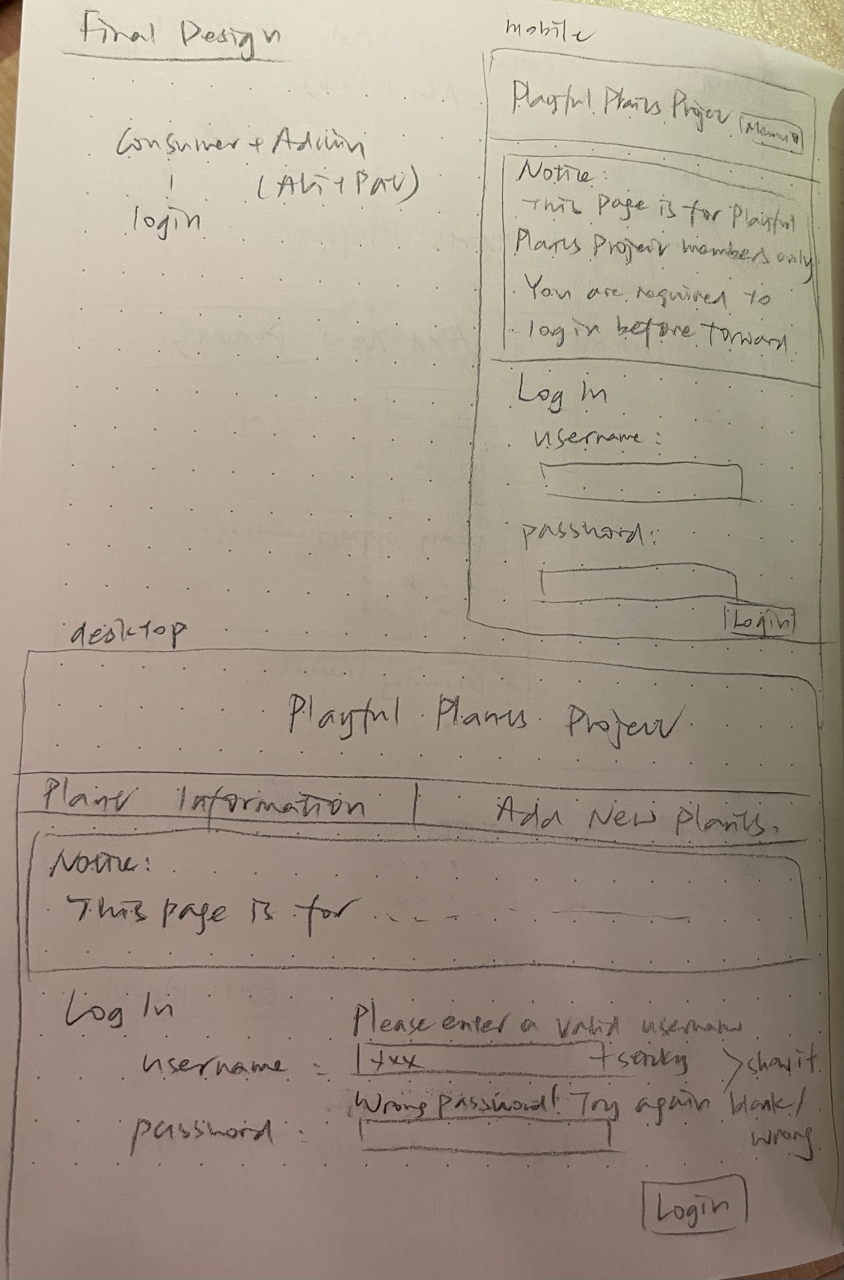 Final Design
Consumer + Admin
(Abi + Pav)
login
mobile
Playful Plants Project
Menu
Notice:
This page is for Playful
Plants Project members only
You are required to
login before forward.
Log In
username:
password:
Login
desktop
Playful Plants Project
Plant Information | Add New Plants.
Notice:
This page is for
Log In
Please enter a valid username
username : xxx + sticky > show it
Wrong password! Try again blank/
password : wrong
Login